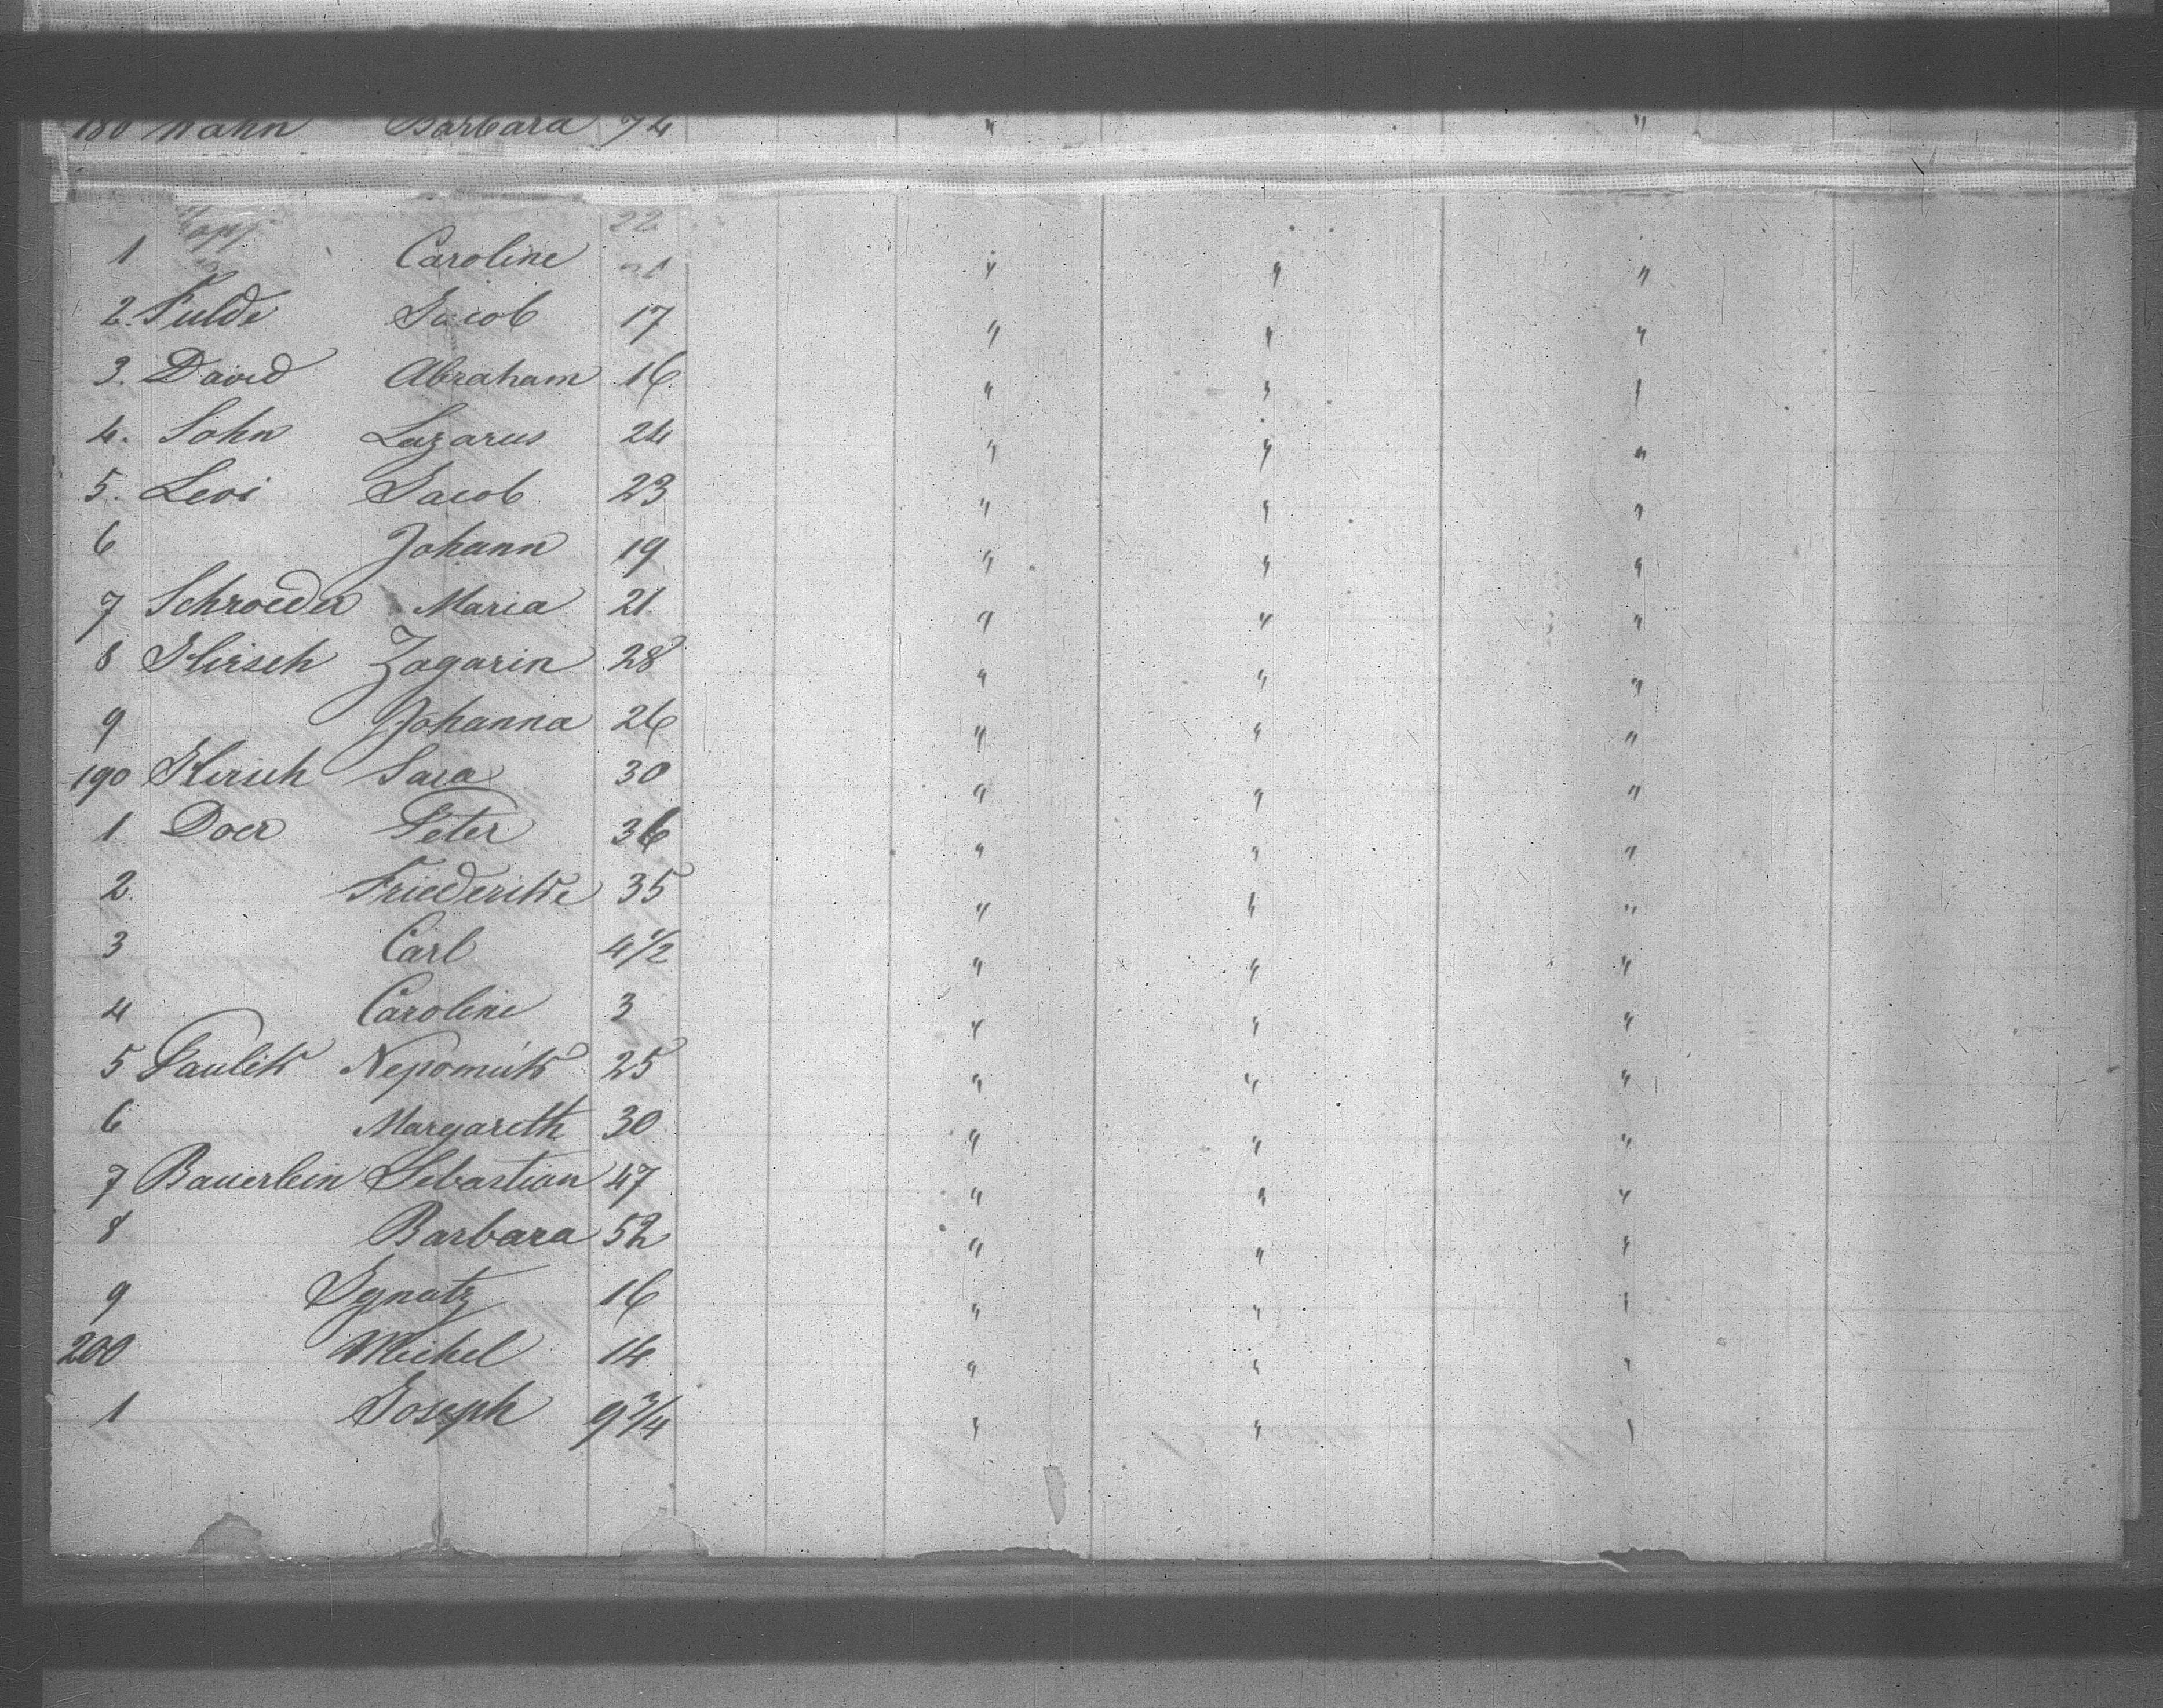 180 Hahn Barbara 74 " "
22
1 Caroline " " "
2. Fulde Jacob 17 " " "
3. David Abraham 16 " " "
4. Sohn Lazarus 24 " " "
5. Levi Jacob 23 " " "
6 Johann 19 " " "
7 Schroeder Maria 21 " " "
8 Hirsch Zagarin 28 " " "
9 Johanna 26 " " "
190 Hirsch Sara 30 " " "
1 Doer Peter 36 " " "
2. Friederike 35 " " "
3 Carl 4 1/2 " " "
4 Caroline 3 " " "
5 Paulik Nepomuk 25 " " "
6 Margareth 30 " " "
7 Bauerlein Sebastian 47 " " "
8 Barbara 52 " " "
9 Ignatz 16 " " "
200 Michel 14 " " "
1 Joseph 9 3/4 " " "